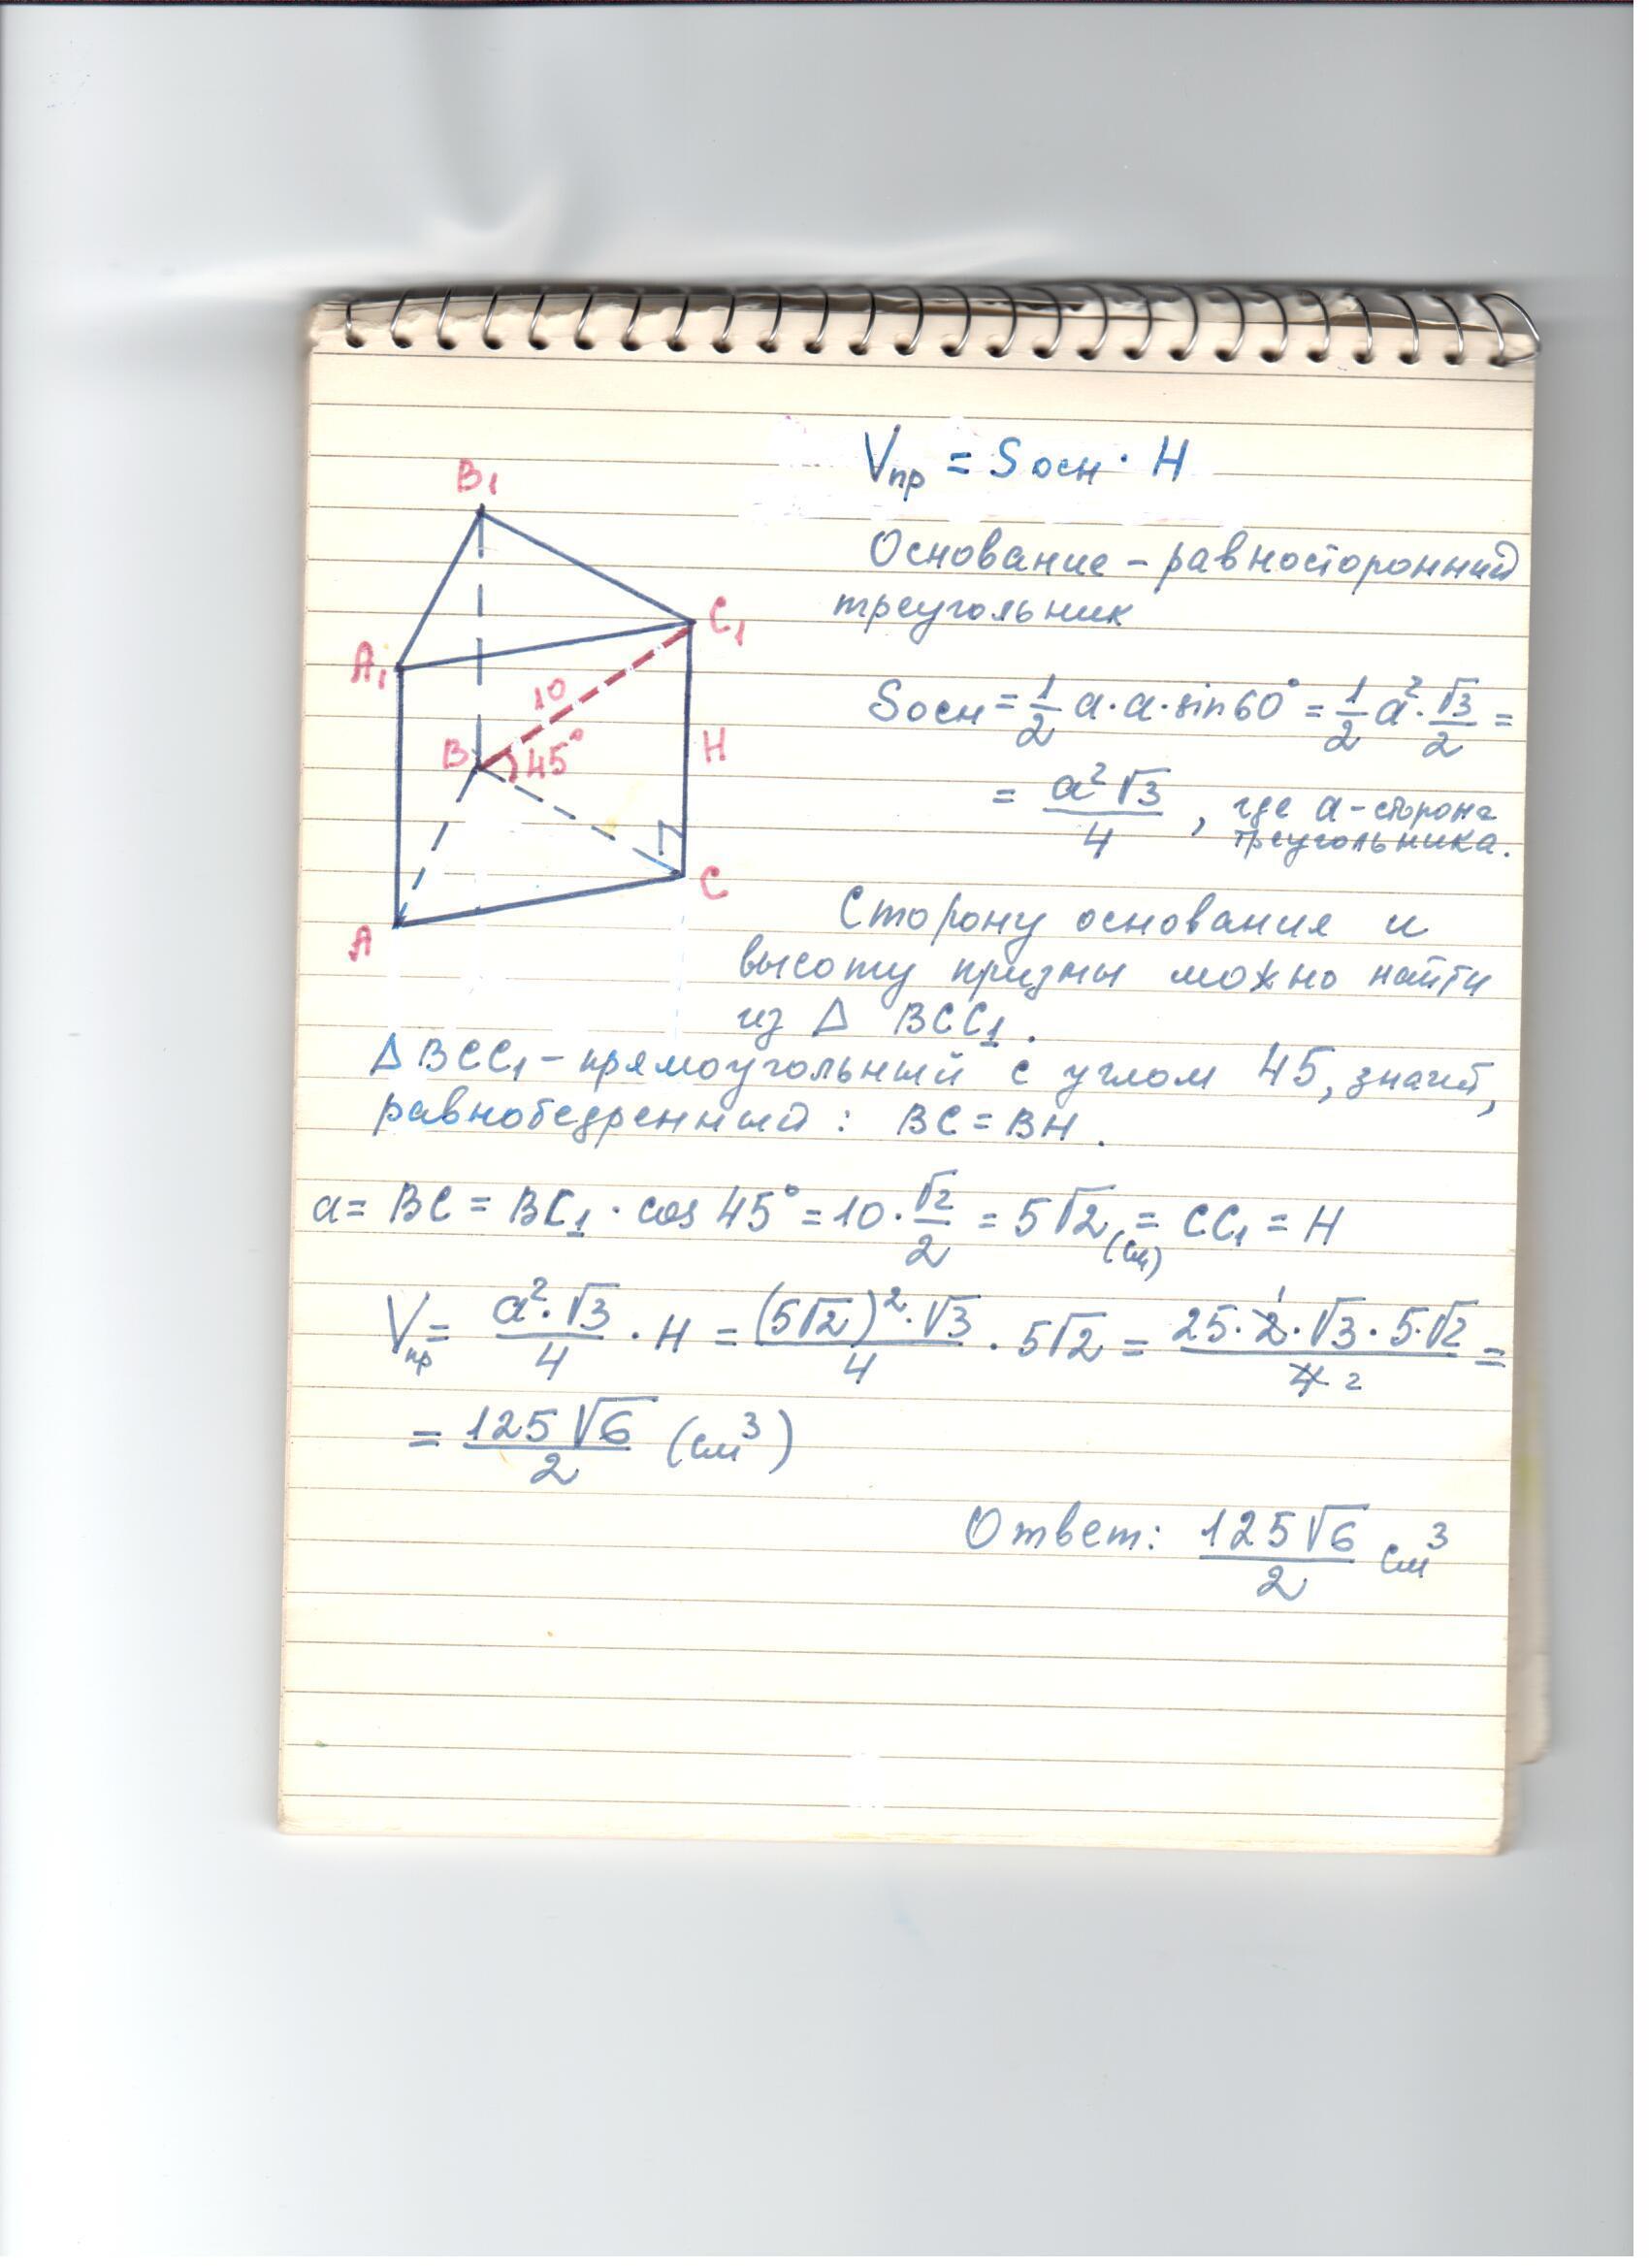 Vпр = Sосн · H
Основание – равносторонний
треугольник
B₁
C₁
A₁
10
B
45°
H
C
A
Sосн = 1/2 a·a·sin60° = 1/2 a²·√3/2 =
= a²√3/4, где a – сторона
треугольника.
Сторону основания и
высоту призмы можно найти
из Δ BCC₁.
ΔBCC₁ – прямоугольный с углом 45, значит,
равнобедренный: BC = BH.
a = BC = BC₁ · cos 45° = 10 · √2/2 = 5√2 (см) = CC₁ = H
Vпр = a²·√3/4 · H = (5√2)²·√3/4 · 5√2 = 25·2·√3·5·√2/4 =
= 125√6/2 (см³)
Ответ: 125√6/2 см³